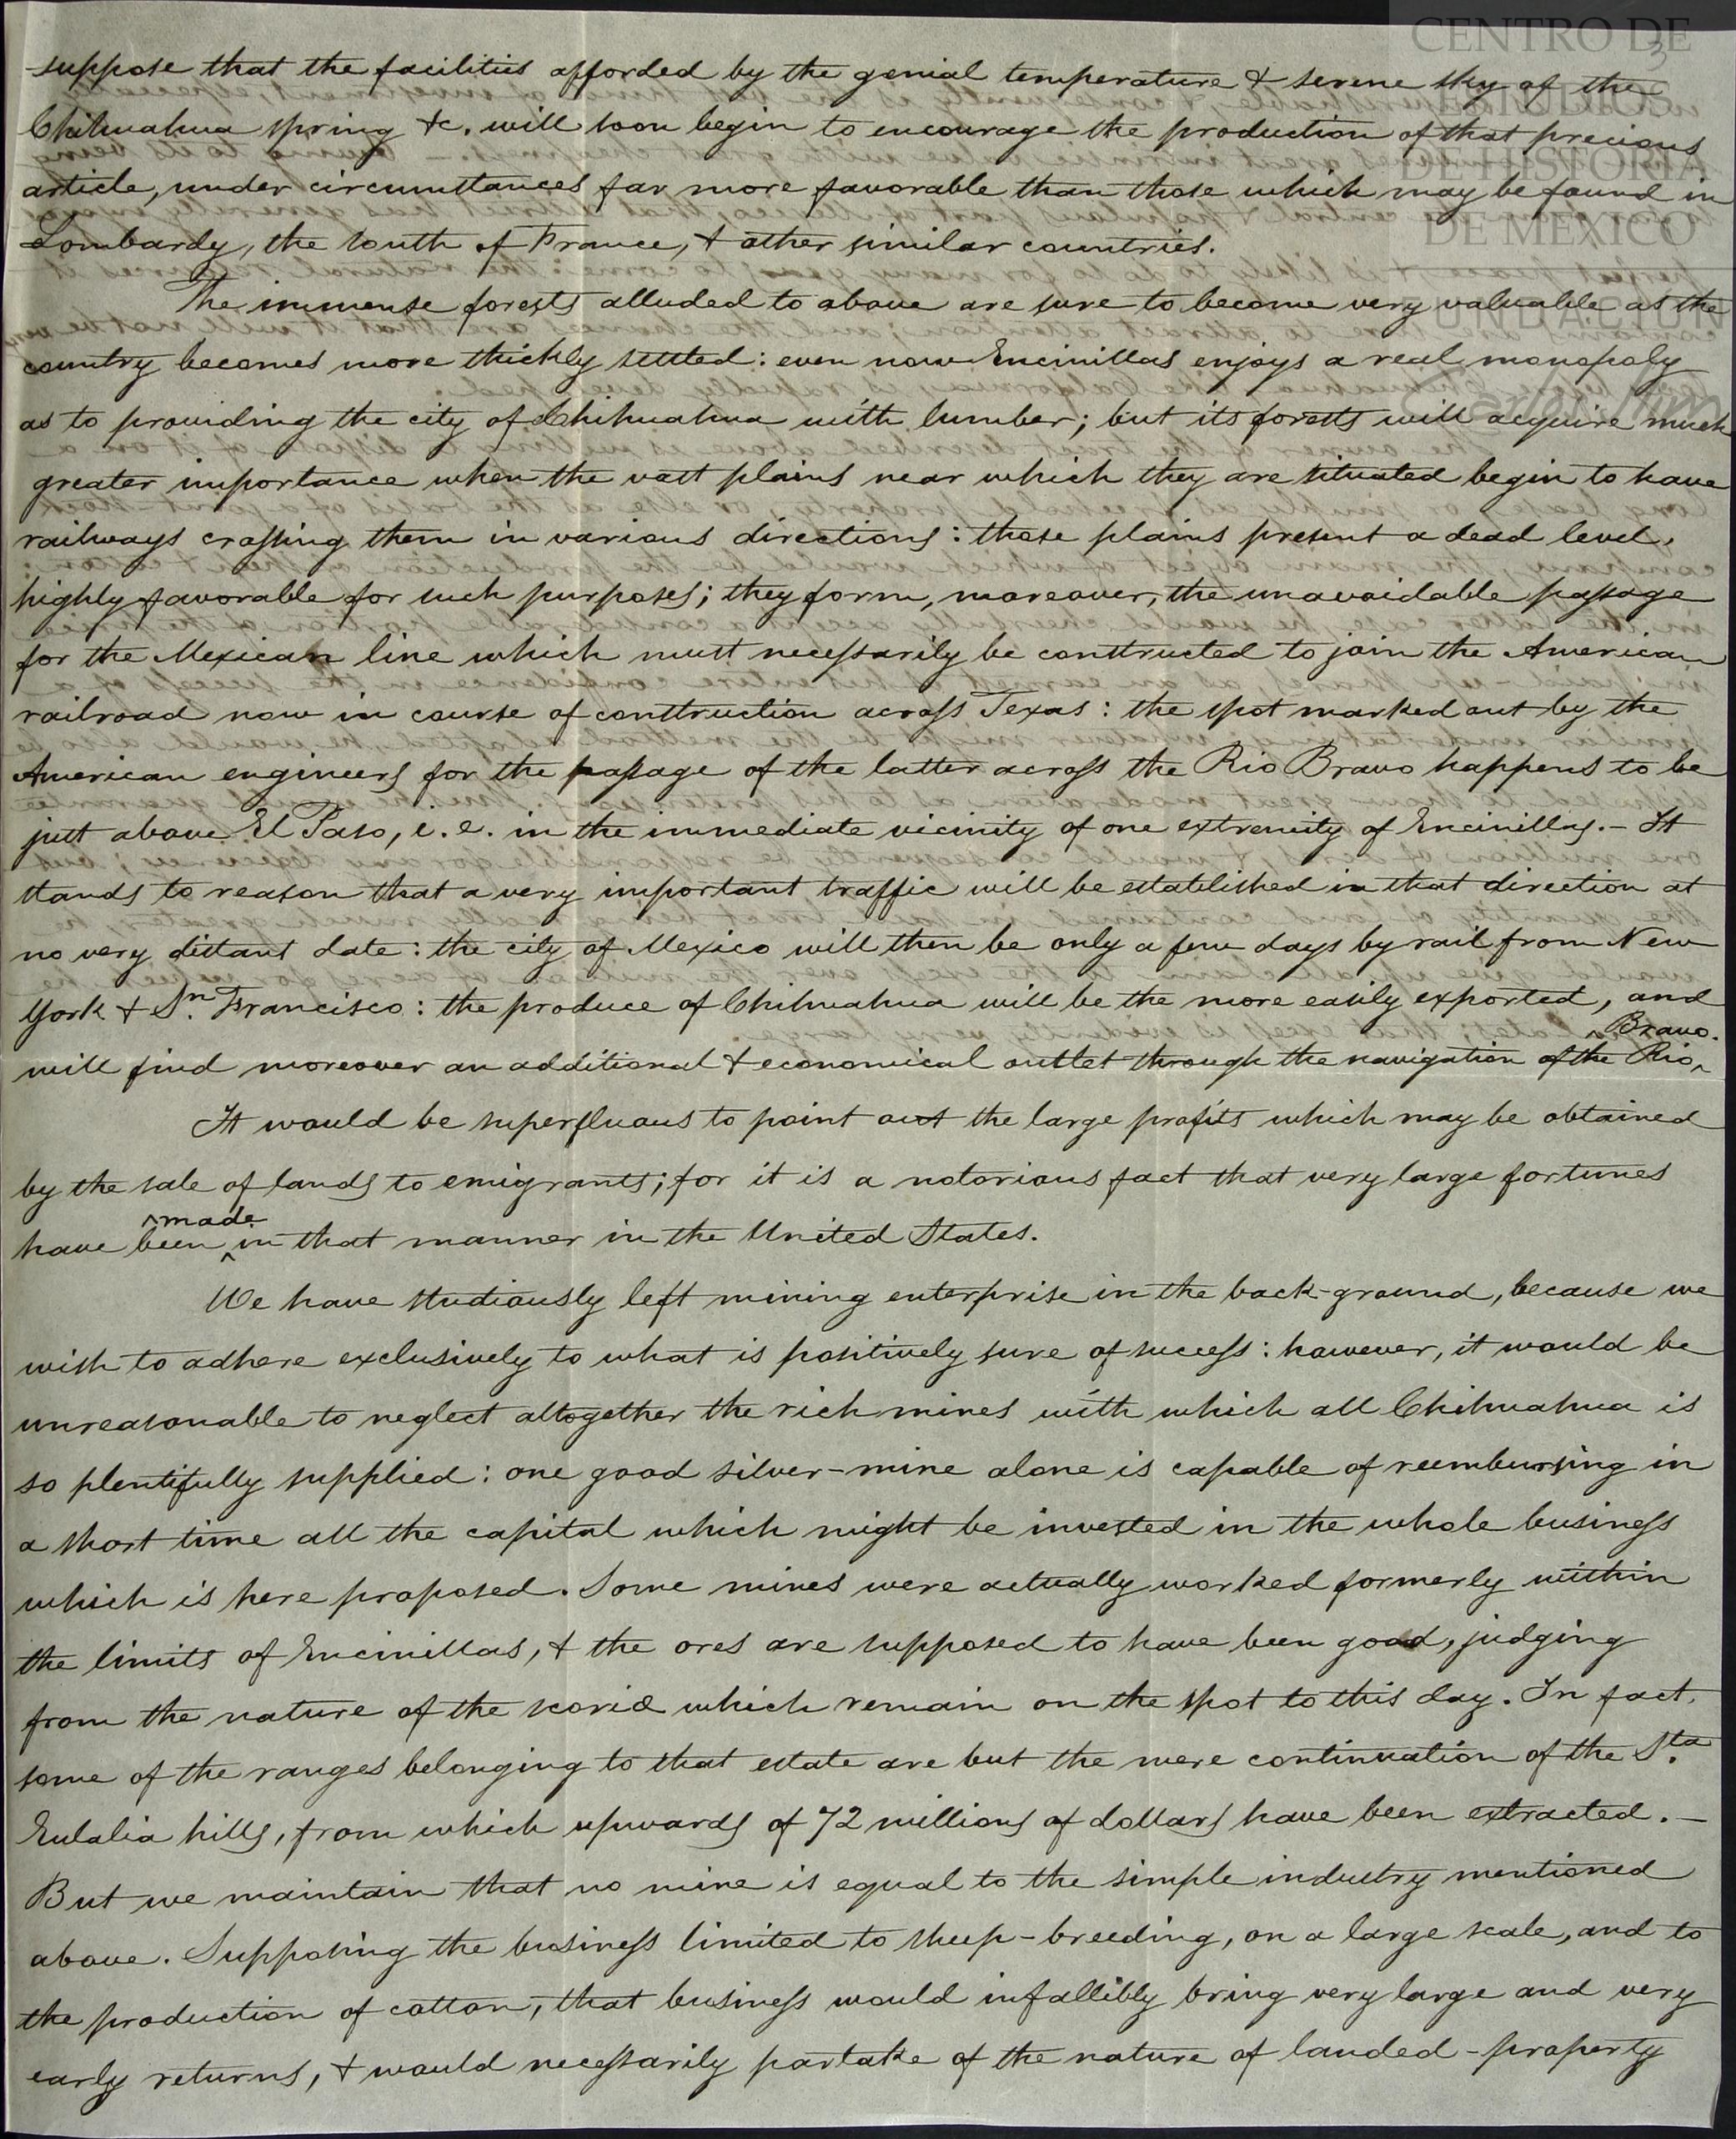 CENTRO DE
ESTUDIOS
DE HISTORIA
DE MEXICO
FUNDACION
3
suppose that the facilities afforded by the genial temperature & serene sky of the
Chihuahua spring &c. will soon begin to encourage the production of that precious
article, under circumstances far more favorable than those which may be found in
Lombardy, the south of France, & other similar countries.
The immense forests alluded to above are sure to become very valuable as the
country becomes more thickly settled: even now Encinillas enjoys a real monopoly
as to providing the city of Chihuahua with lumber; but its forests will acquire much
greater importance when the vast plains near which they are situated begin to have
railways crossing them in various directions: those plains present a dead level,
highly favorable for such purposes; they form, moreover, the unavoidable passage
for the Mexican line which must necessarily be constructed to join the American
railroad now in course of construction across Texas: the spot marked out by the
American engineers for the passage of the latter across the Rio Bravo happens to be
just above El Paso, i.e. in the immediate vicinity of one extremity of Encinillas.- It
stands to reason that a very important traffic will be established in that direction at
no very distant date: the city of Mexico will then be only a few days by rail from New
York & Sn. Francisco: the produce of Chihuahua will be the more easily exported, and
will find moreover an additional & economical outlet through the navigation of the Rio ^Bravo.
It would be superfluous to point out the large profits which may be obtained
by the sale of lands to emigrants; for it is a notorious fact that very large fortunes
have been ^made in that manner in the United States.
We have studiously left mining enterprise in the back-ground, because we
wish to adhere exclusively to what is positively sure of success: however, it would be
unreasonable to neglect altogether the rich mines with which all Chihuahua is
so plentifully supplied: one good silver-mine alone is capable of reembursing in
a short time all the capital which might be invested in the whole business
which is here proposed. Some mines were actually worked formerly within
the limits of Encinillas, & the ores are supposed to have been good, judging
from the nature of the scoriæ which remain on the spot to this day. In fact,
some of the ranges belonging to that estate are but the mere continuation of the Sta.
Eulalia hills, from which upwards of 72 millions of dollars have been extracted.-
But we maintain that no mine is equal to the simple industry mentioned
above. Supposing the business limited to sheep-breeding, on a large scale, and to
the production of cotton, that business would infallibly bring very large and very
early returns, & would necessarily partake of the nature of landed-property